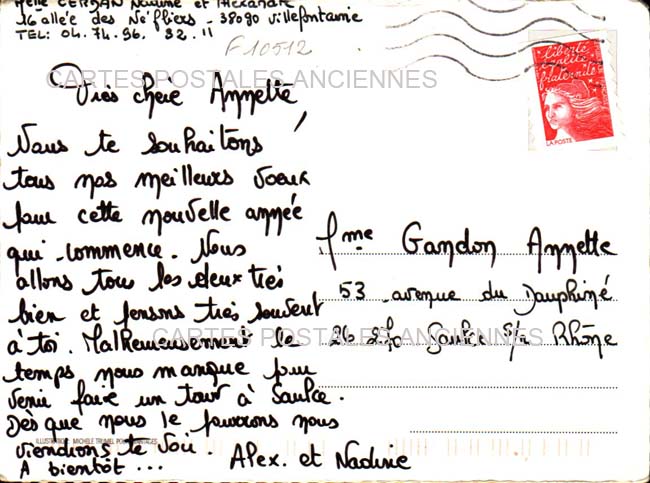 Melle CERDAN Nadine et Alexandre
16 allée des Néfliers - 38090 Villefontaine
TEL: 04. 74. 96. 32. 11
F10512
CARTES POSTALES ANCIENNES
liberté
égalité
fraternité
LA POSTE
Très chère Annette,
Nous te souhaitons
tous nos meilleurs voeux
pour cette nouvelle année
qui commence. Nous
allons tous les deux très
bien et pensons très souvent
à toi. Malheureusement le
temps nous manque pour
venir faire un tour à Saulce.
Dès que nous le pourrons nous
viendrons te voir.
A bientôt ...
Alex. et Nadine
Mme Gandon Annette
53 avenue du Dauphiné
26 270 Saulce s/r Rhône
CARTES POSTALES ANCIENNES
ILLUSTRATION MICHÈLE TRUMEL